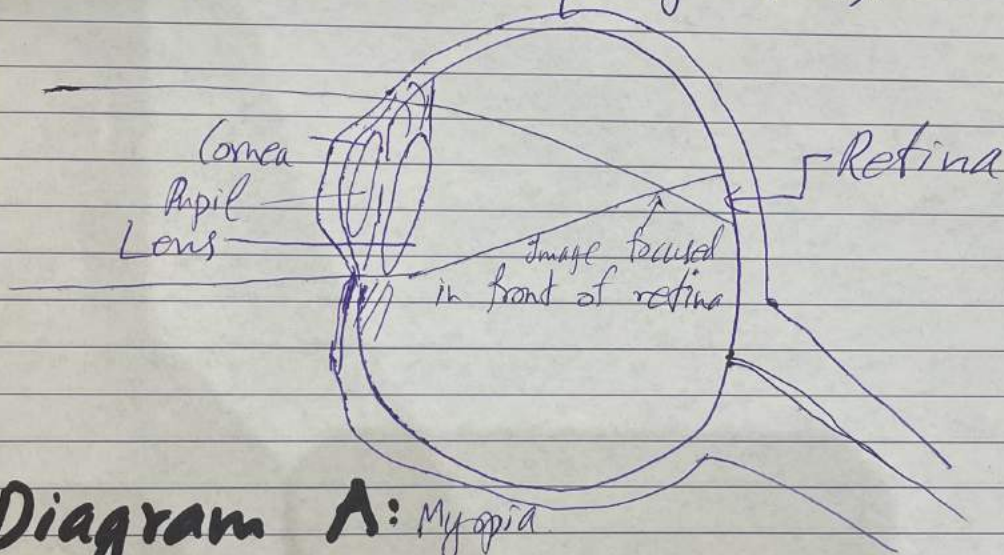 Cornea
Pupil
Lens
Retina
Image focused
in front of retina
Diagram A: Myopia